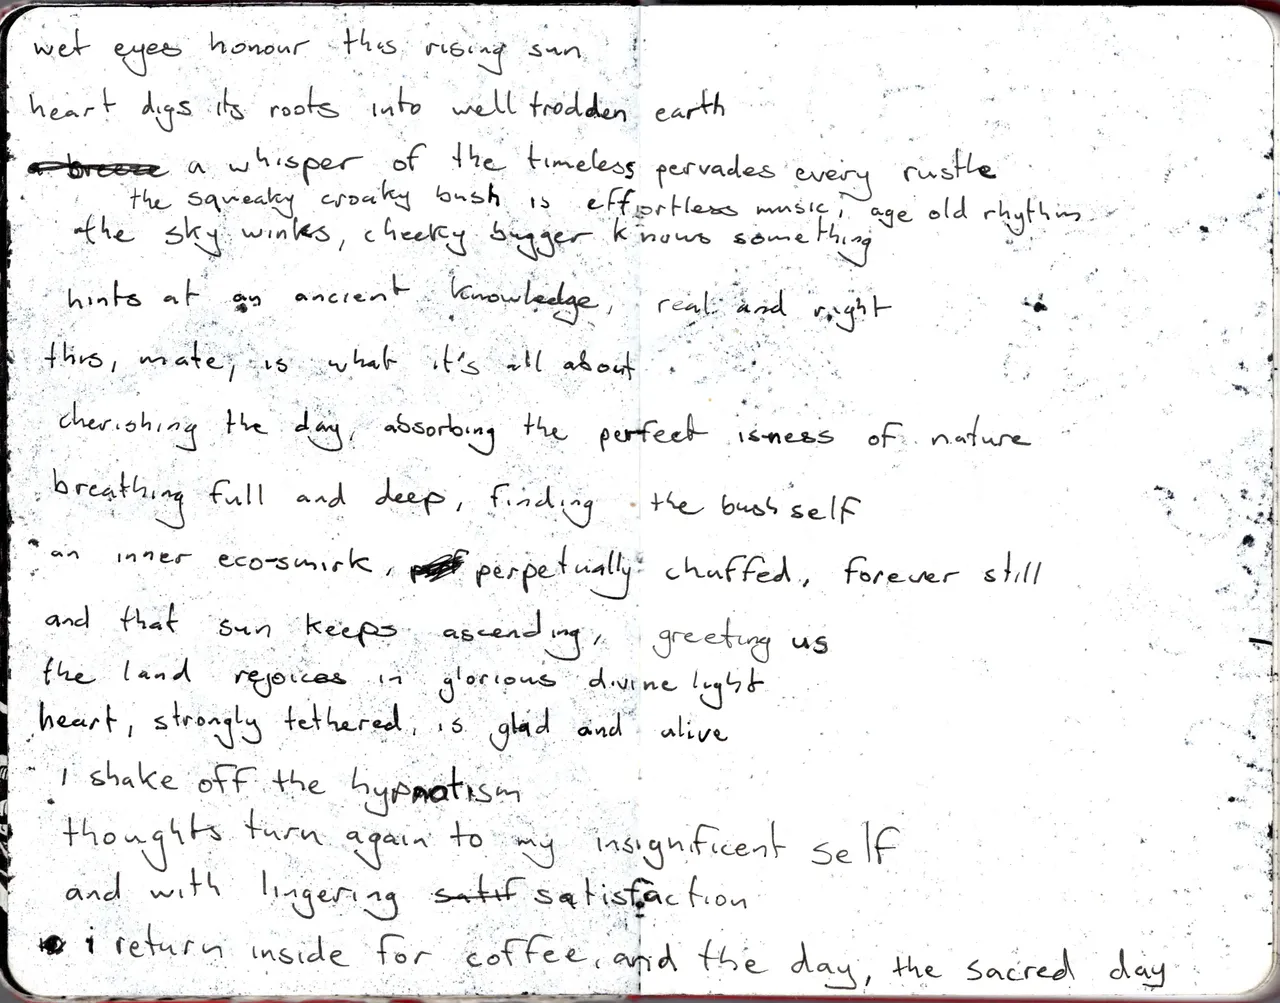 wet eyes honour this rising sun
heart digs its roots into well trodden earth
a breeze a whisper of the timeless pervades every rustle
the squeaky croaky bush is effortless music, age old rhythm
the sky winks, cheeky bugger knows something
hints at an ancient knowledge, real and right
this, mate, is what it's all about
cherishing the day, absorbing the perfect isness of nature
breathing full and deep, finding the bush self
an inner eco-smirk, perpetually chuffed, forever still
and that sun keeps ascending, greeting us
the land rejoices in glorious divine light
heart, strongly tethered, is glad and alive
i shake off the hypnotism
thoughts turn again to my insignificant self
and with lingering satif satisfaction
i return inside for coffee, and the day, the sacred day